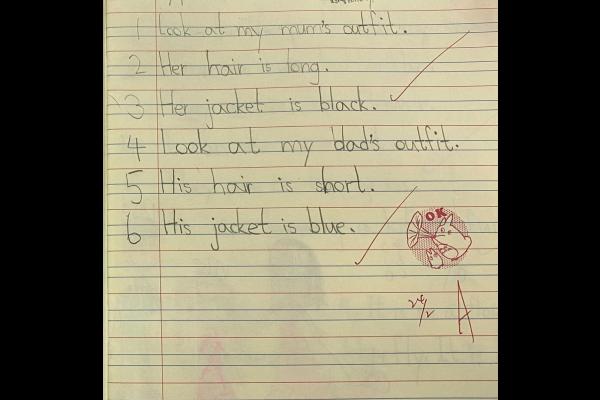 1 Look at my mum's outfit.
2 Her hair is long.
3 Her jacket is black.
4 Look at my dad's outfit.
5 His hair is short.
6 His jacket is blue.
OK
24/2 A